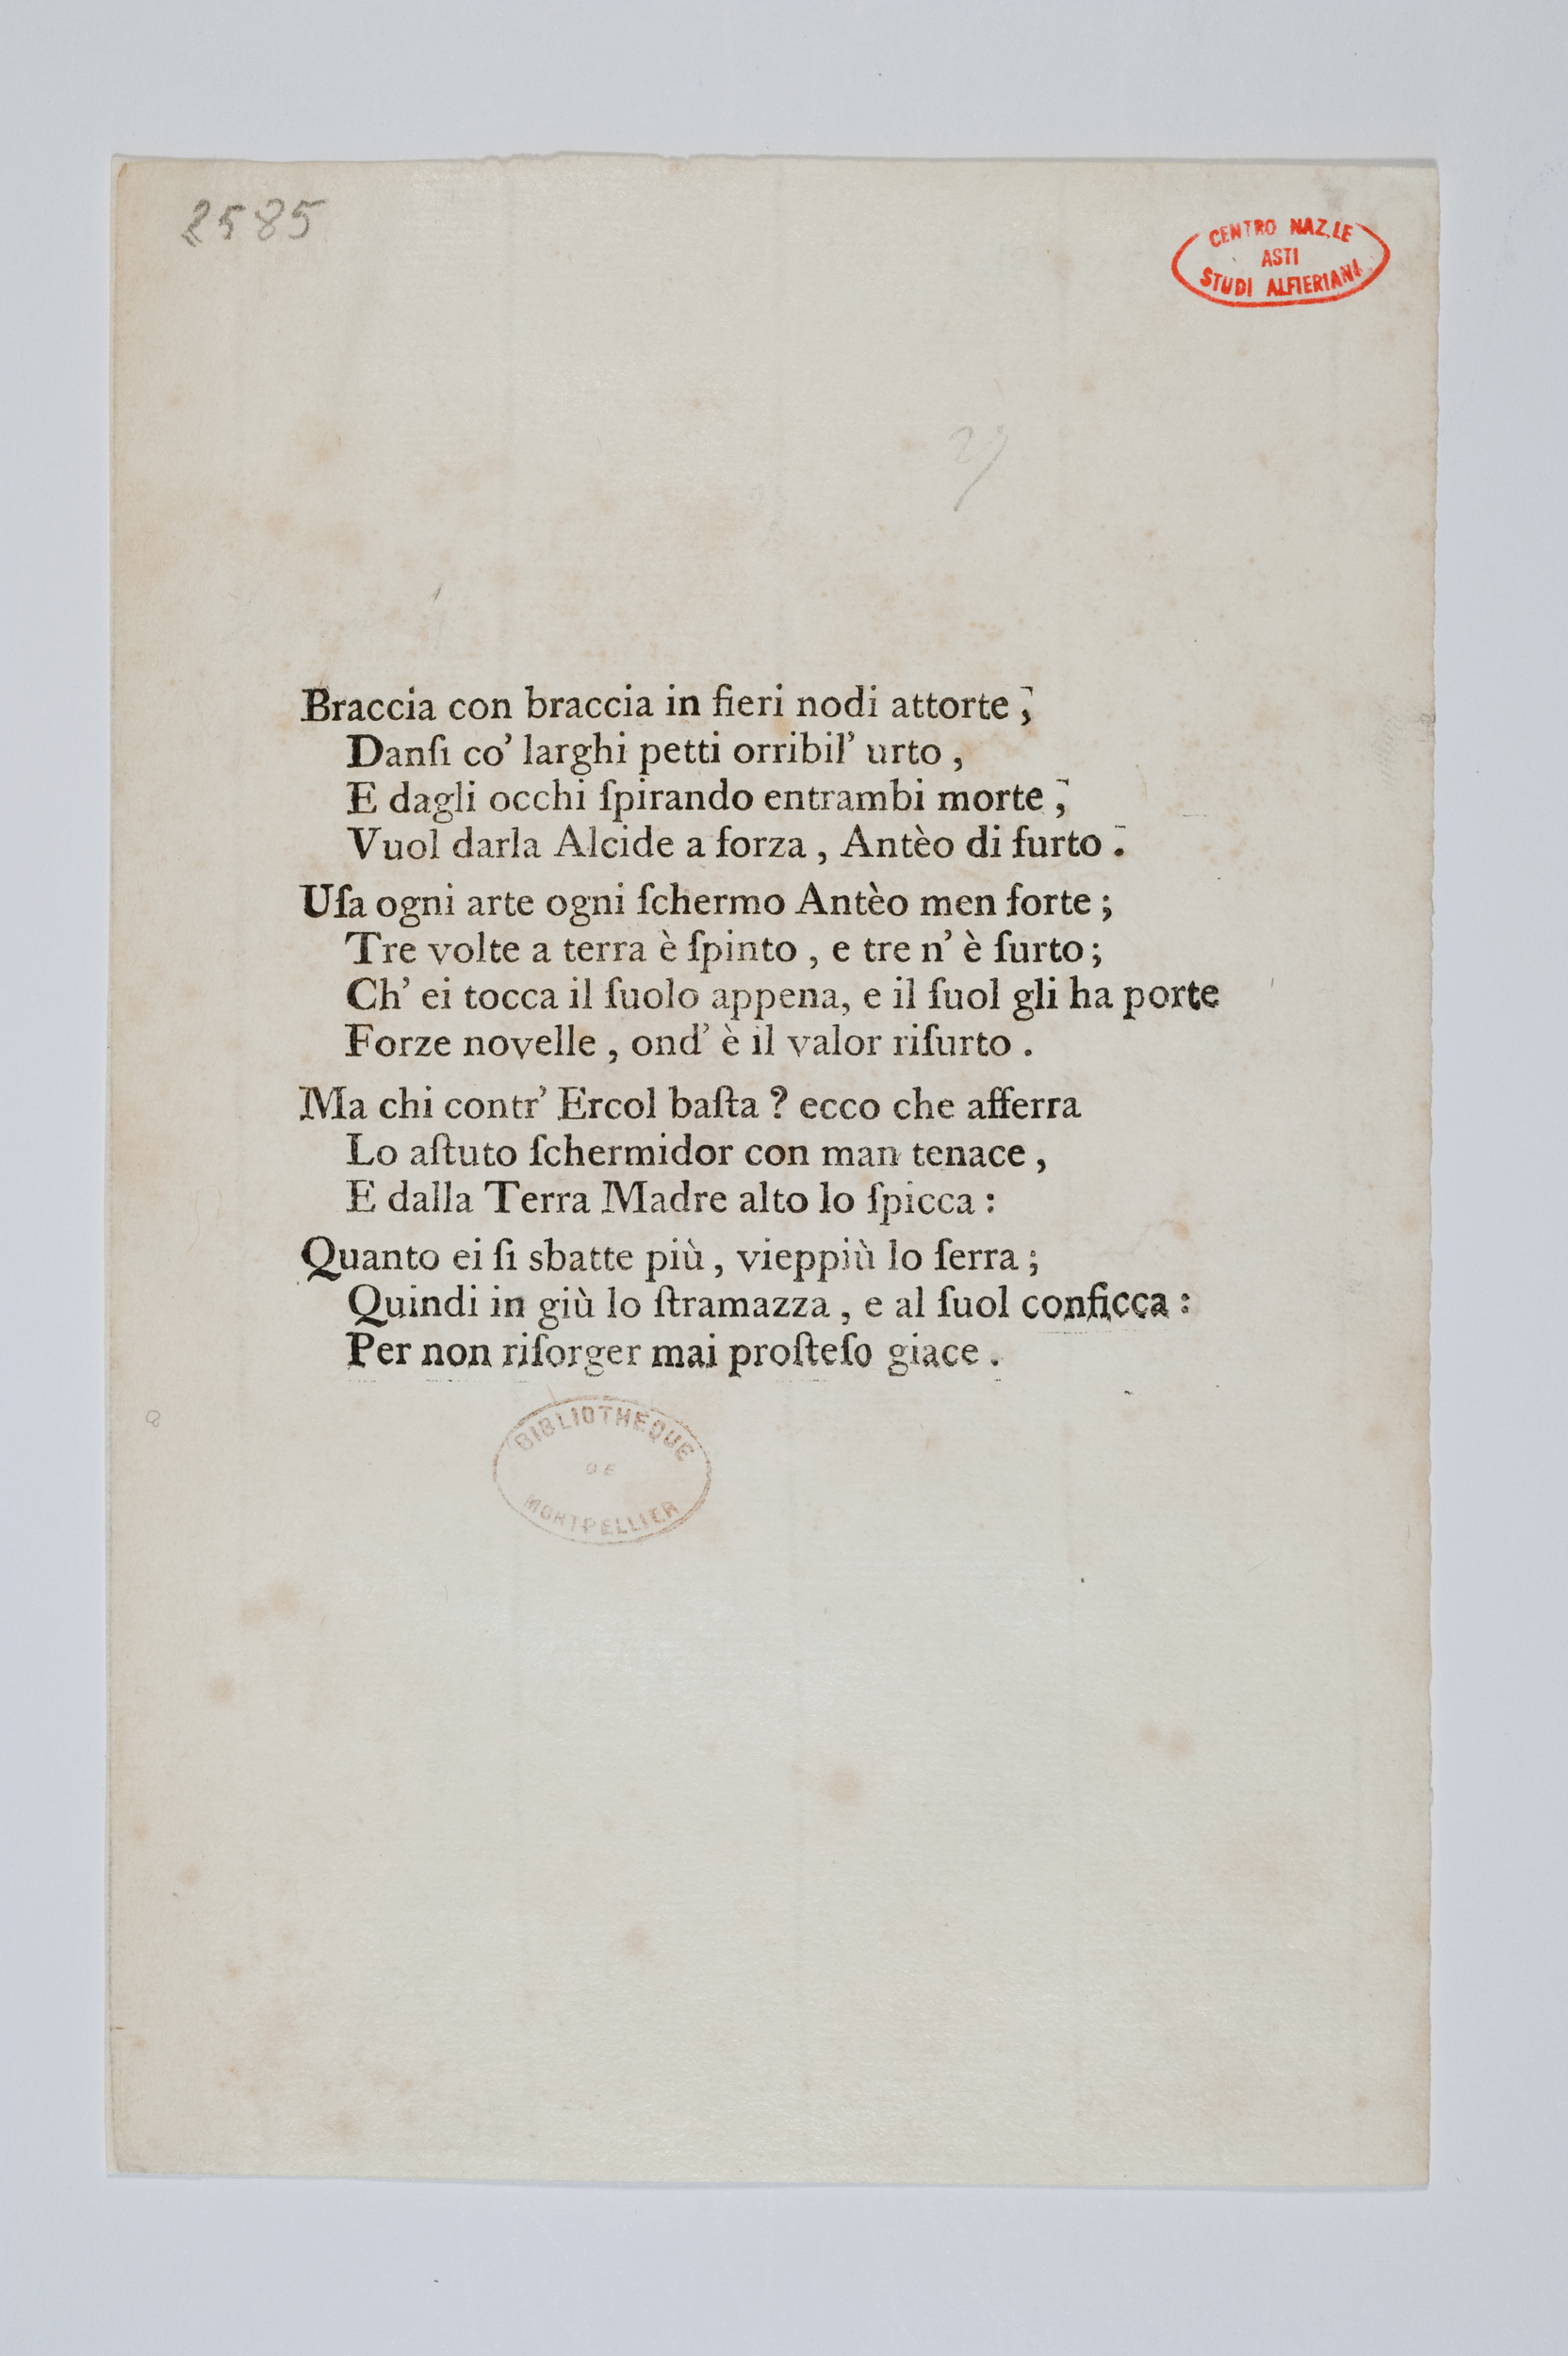 2585
CENTRO NAZ.LE
ASTI
STUDI ALFIERIANI
Braccia con braccia in fieri nodi attorte ,
Danſi co’ larghi petti orribil’ urto ,
E dagli occhi ſpirando entrambi morte ,
Vuol darla Alcide a forza , Antèo di furto .
Uſa ogni arte ogni ſchermo Antèo men forte ;
Tre volte a terra è ſpinto , e tre n’ è ſurto ;
Ch’ ei tocca il ſuolo appena, e il ſuol gli ha porte
Forze novelle , ond’ è il valor riſurto .
Ma chi contr’ Ercol baſta ? ecco che afferra
Lo aſtuto ſchermidor con man tenace ,
E dalla Terra Madre alto lo ſpicca :
Quanto ei ſi sbatte più , vieppiù lo ſerra ;
Quindi in giù lo ſtramazza , e al ſuol conficca :
Per non riſorger mai proſteſo giace .
BIBLIOTHEQUE
DE
MONTPELLIER